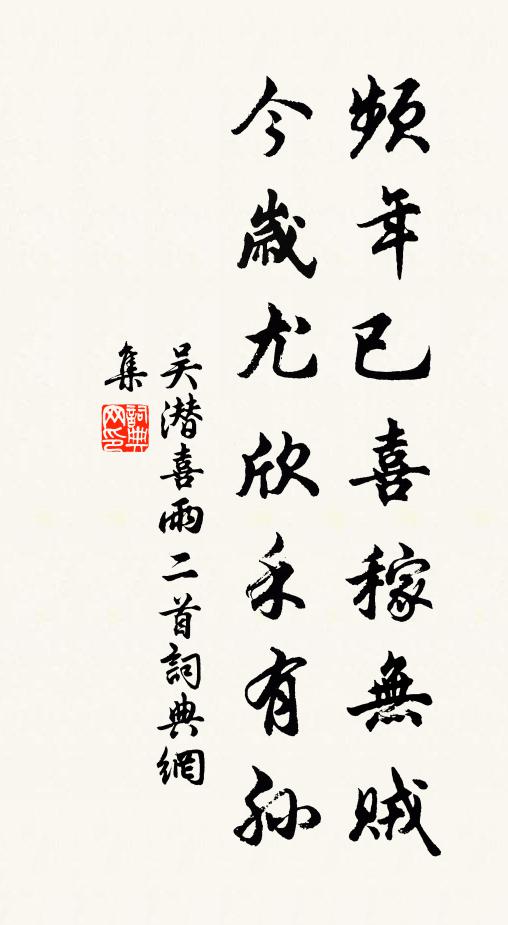 頻年已喜稼無賊
今歲尤欣禾有孫
吴潜喜雨二首詞典網
集
詞典網印